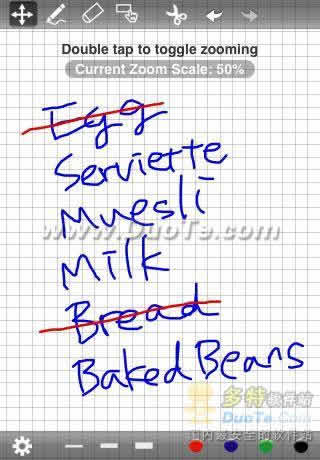 Double tap to toggle zooming
Current Zoom Scale: 50%
Egg
Serviette
Muesli
www.DuoTa.com
Milk
Bread
Baked Beans
多特软件站
DuoTa.com
国内最安全的软件站